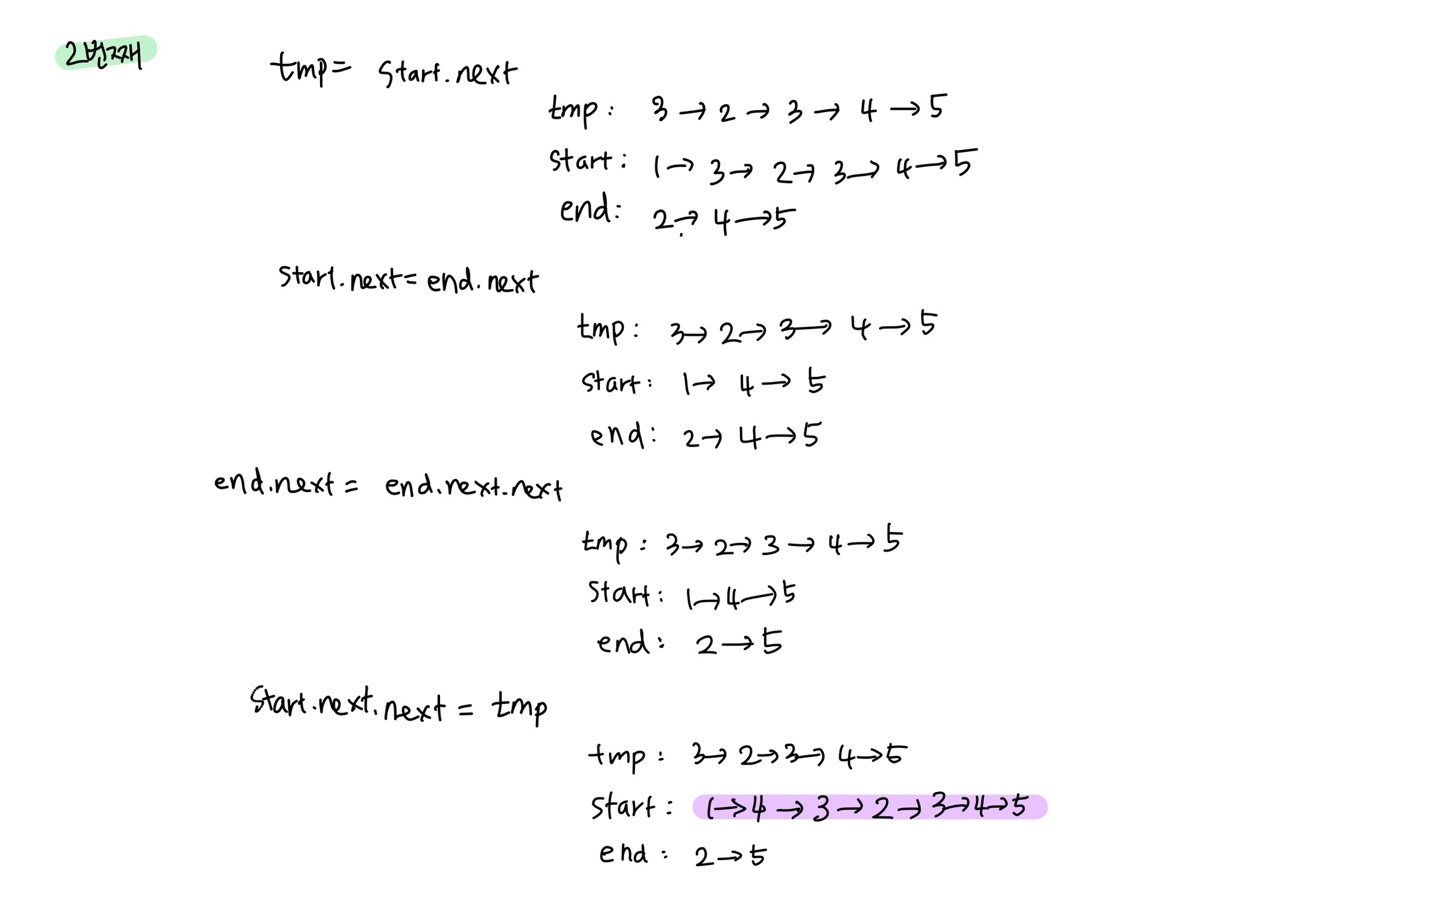 2번째
tmp= start.next
tmp: 3 → 2 → 3 → 4 → 5
start: 1 → 3 → 2 → 3 → 4 → 5
end: 2 → 4 → 5
start.next = end.next
tmp: 3 → 2 → 3 → 4 → 5
start: 1 → 4 → 5
end: 2 → 4 → 5
end.next = end.next.next
tmp: 3 → 2 → 3 → 4 → 5
start: 1 → 4 → 5
end: 2 → 5
start.next.next = tmp
tmp: 3 → 2 → 3 → 4 → 5
start: 1 → 4 → 3 → 2 → 3 → 4 → 5
end: 2 → 5